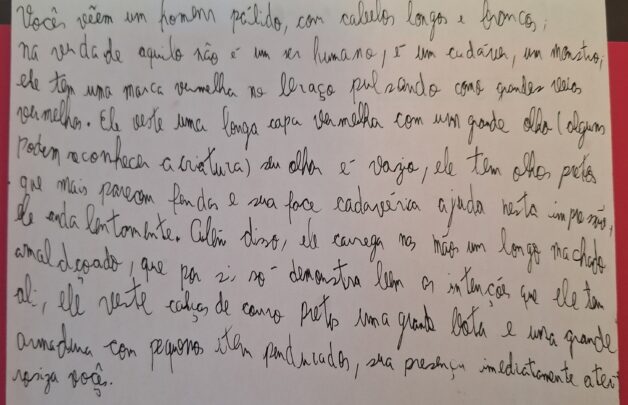 Vocês vêem um homem pálido, com cabelos longos e brancos;
na verdade aquilo não é um ser humano, é um cadáver, um monstro,
ele tem uma marca vermelha no braço pulsando como grandes veias
vermelhas. Ele veste uma longa capa vermelha com um grande olho (alguns
podem reconhecer a criatura) seu olhar é vazio, ele tem olhos pretos
que mais parecem fendas e sua face cadavérica ajuda nesta impressão,
ele anda lentamente. Além disso, ele carrega nas mãos um longo machado
amaldiçoado, que por si só demonstra bem as intenções que ele tem
ali, ele veste calças de couro pretas uma grande bota e uma grande
armadura com pequenos item pendurados, sua presença imediatamente ater-
roriza vocês.